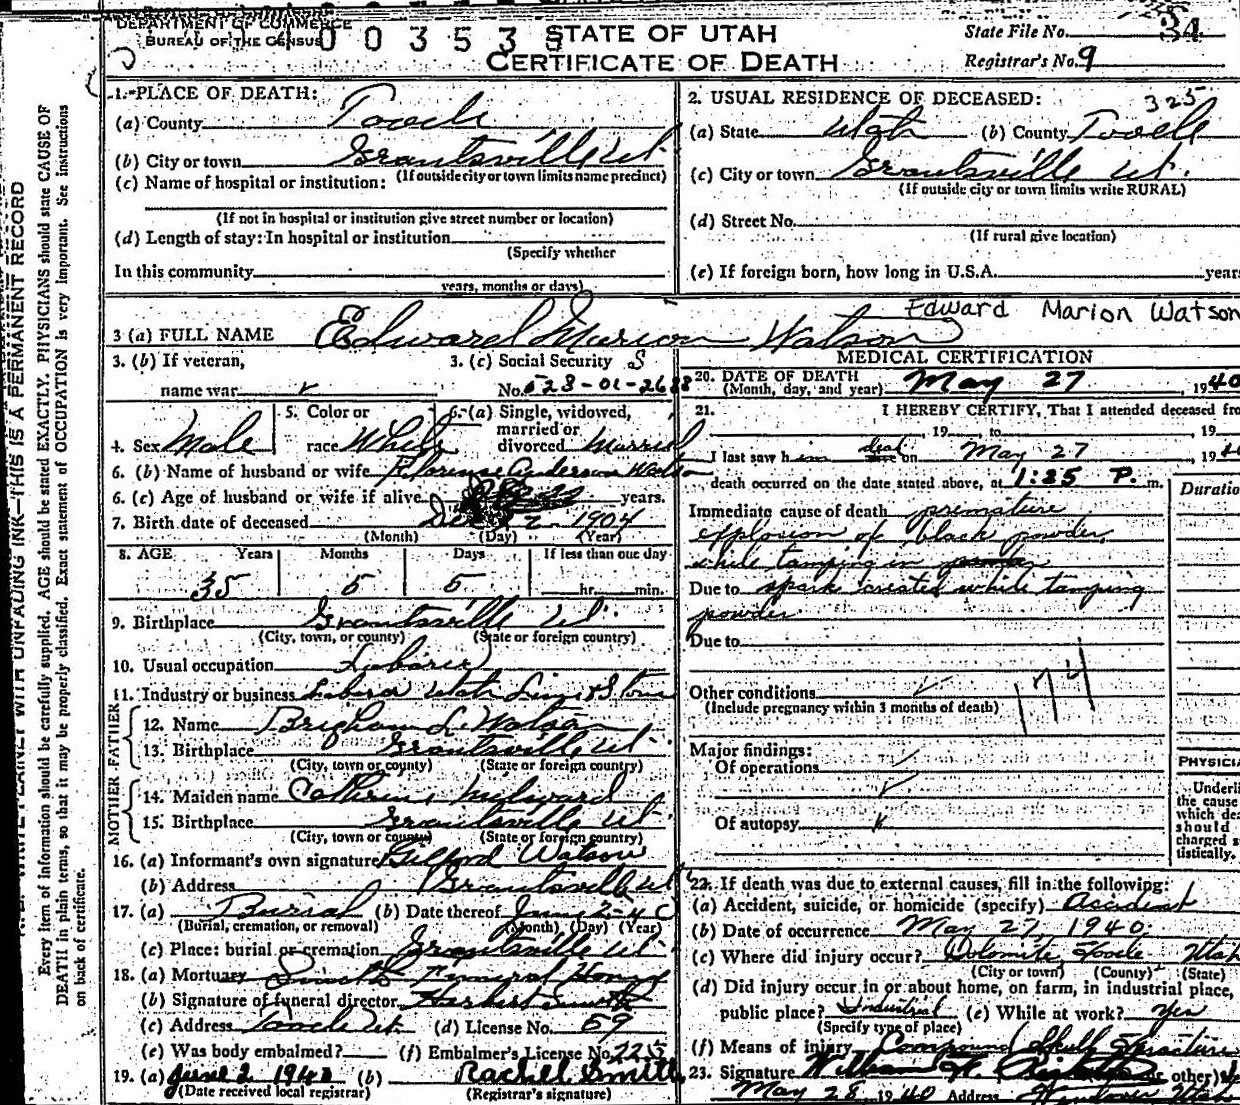 DEPARTMENT OF COMMERCE
BUREAU OF THE CENSUS
STATE OF UTAH
CERTIFICATE OF DEATH
State File No. 34
Registrar's No. 9
1. PLACE OF DEATH:
(a) County Tooele
(b) City or town Grantsville Ut.
(If outside city or town limits name precinct)
(c) Name of hospital or institution:
(If not in hospital or institution give street number or location)
(d) Length of stay: In hospital or institution
(Specify whether
In this community
years, months or days)
2. USUAL RESIDENCE OF DECEASED: 325
(a) State Utah (b) County Tooele
(c) City or town Grantsville Ut.
(If outside city or town limits write RURAL)
(d) Street No.
(If rural give location)
(e) If foreign born, how long in U.S.A. years
3 (a) FULL NAME Edward Marion Watson
Edward Marion Watson
3. (b) If veteran,
name war
3. (c) Social Security
No. 528-01-2688
4. Sex Male
5. Color or
race White
6. (a) Single, widowed,
married or
divorced Married
6. (b) Name of husband or wife Florence Anderson Watson
6. (c) Age of husband or wife if alive years.
7. Birth date of deceased Dec 22 1904
(Month) (Day) (Year)
8. AGE Years Months Days If less than one day
35 5 5 hr. min.
9. Birthplace Grantsville Ut.
(City, town, or county) (State or foreign country)
10. Usual occupation Laborer
11. Industry or business Laborer Utah Lime & Stone
FATHER
12. Name Brigham L. Watson
13. Birthplace Grantsville Ut.
(City, town or county) (State or foreign country)
MOTHER
14. Maiden name Catherine Milward
15. Birthplace Grantsville Ut.
(City, town or county) (State or foreign country)
16. (a) Informant's own signature Gilford Watson
(b) Address Grantsville Ut
17. (a) Burial (b) Date thereof June 2-40
(Burial, cremation, or removal) (Month) (Day) (Year)
(c) Place: burial or cremation Grantsville Ut
18. (a) Mortuary Smith Funeral Home
(b) Signature of funeral director Herbert Smith
(c) Address Tooele Ut. (d) License No. 69
(e) Was body embalmed? (f) Embalmer's License No. 225
19. (a) June 2 1940 (b) Rachel Smith
(Date received local registrar) (Registrar's signature)
MEDICAL CERTIFICATION
20. DATE OF DEATH
(Month, day, and year) May 27, 1940
21. I HEREBY CERTIFY, That I attended deceased fro
, 19 to , 19
I last saw him dead on May 27, 1940
death occurred on the date stated above, at 1:25 P. m.
Duratio
Immediate cause of death premature
explosion of black powder,
while tamping in
Due to spark created while tamping
powder
Due to
Other conditions
(Include pregnancy within 3 months of death)
174
Major findings:
Of operations
Of autopsy
PHYSICIA
Underli
the cause
which dea
should
charged s
tistically.
22. If death was due to external causes, fill in the following:
(a) Accident, suicide, or homicide (specify) Accident
(b) Date of occurrence May 27, 1940
(c) Where did injury occur? Dolomite Tooele Utah
(City or town) (County) (State)
(d) Did injury occur in or about home, on farm, in industrial place,
public place? Industrial (e) While at work? Yes
(Specify type of place)
(f) Means of injury Compound Skull Fracture
23. Signature William H. or other)
May 28 1940 Address Wendover Utah
THIS IS A PERMANENT RECORD
Every item of information should be carefully supplied. AGE should be stated EXACTLY. PHYSICIANS should state CAUSE OF
DEATH in plain terms, so that it may be properly classified. Exact statement of OCCUPATION is very important. See instructions
on back of certificate.